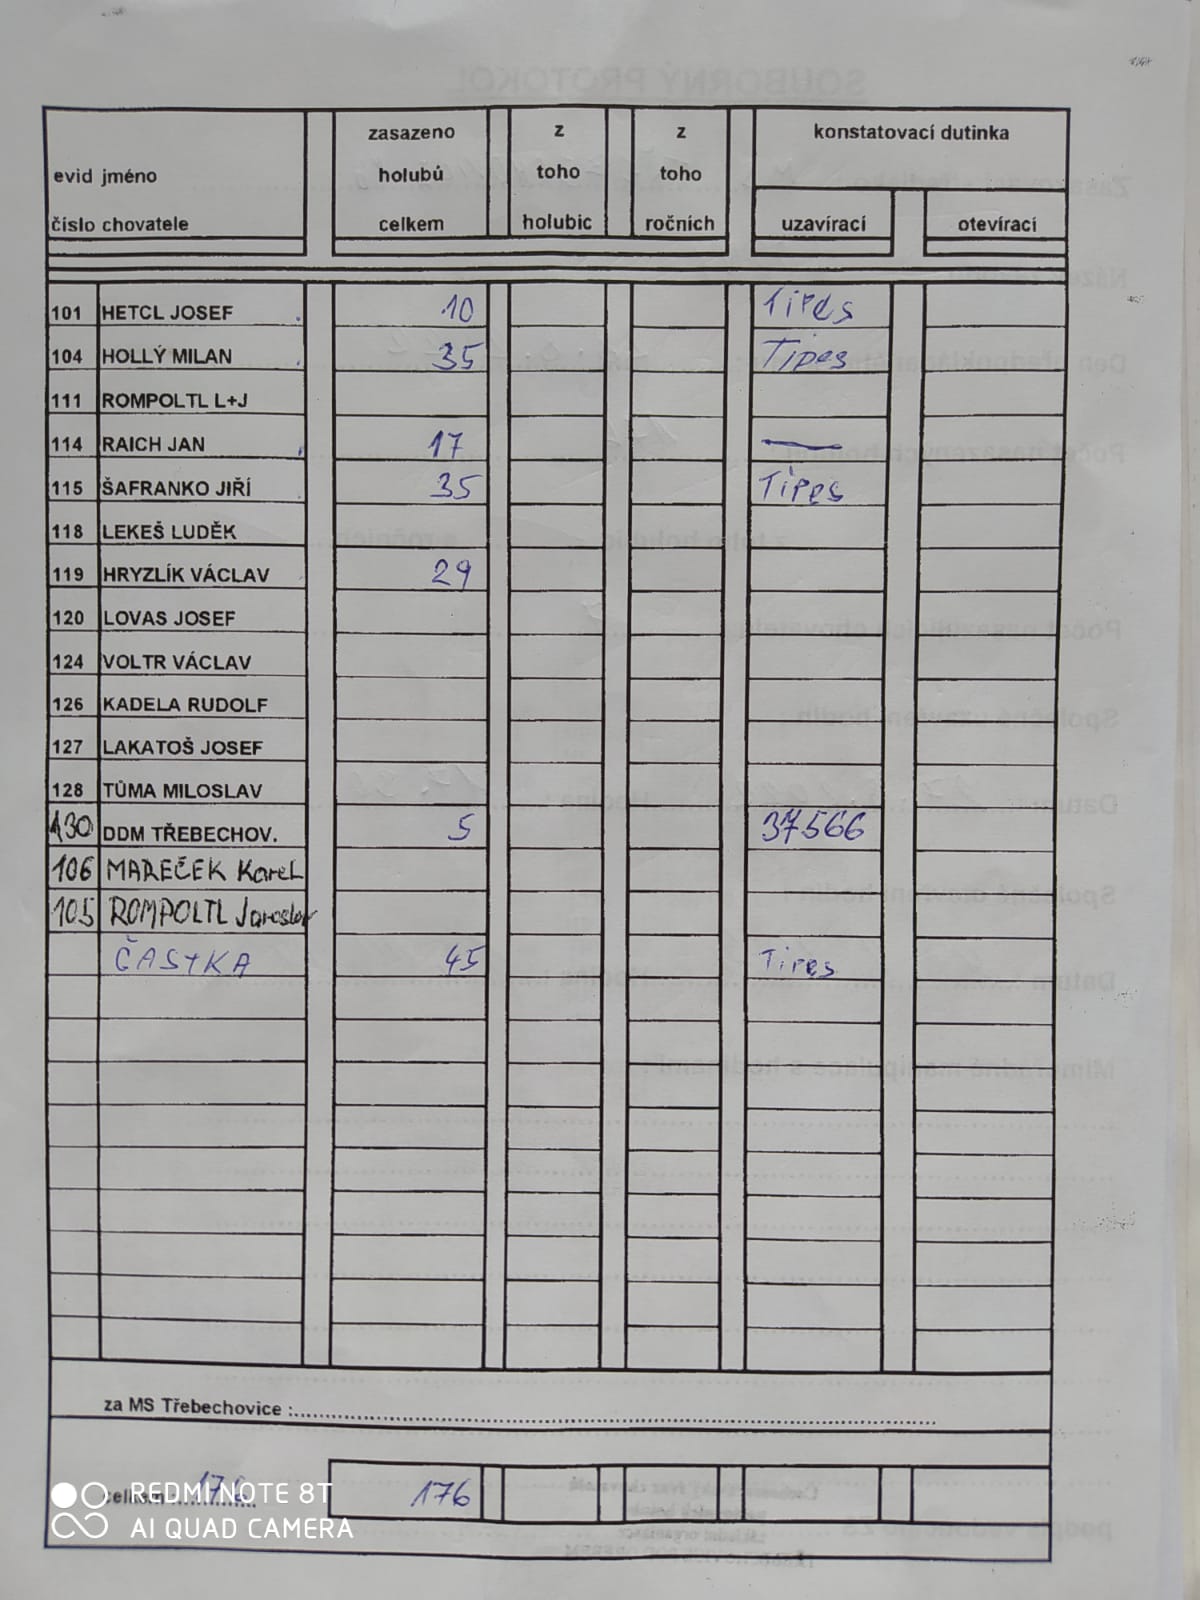 zasazeno z z konstatovací dutinka
evid jméno holubů toho toho
číslo chovatele celkem holubic ročních uzavírací otevírací
101 HETCL JOSEF 10 Tipes
104 HOLLÝ MILAN 35 Tipes
111 ROMPOLTL L+J
114 RAICH JAN 17 —
115 ŠAFRANKO JIŘÍ 35 Tipes
118 LEKEŠ LUDĚK
119 HRYZLÍK VÁCLAV 29
120 LOVAS JOSEF
124 VOLTR VÁCLAV
126 KADELA RUDOLF
127 LAKATOŠ JOSEF
128 TŮMA MILOSLAV
130 DDM TŘEBECHOV. 5 37566
106 MAREČEK Karel
105 ROMPOLTL Jaroslav
ČASTKA 45 Tipes
za MS Třebechovice :
celkem 176 176
REDMI NOTE 8T
AI QUAD CAMERA